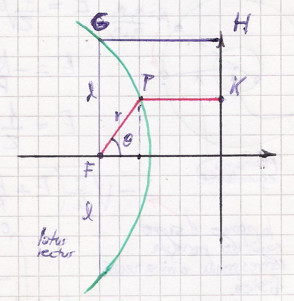 G H
l
P K
r
θ
F
l
latus
rectus